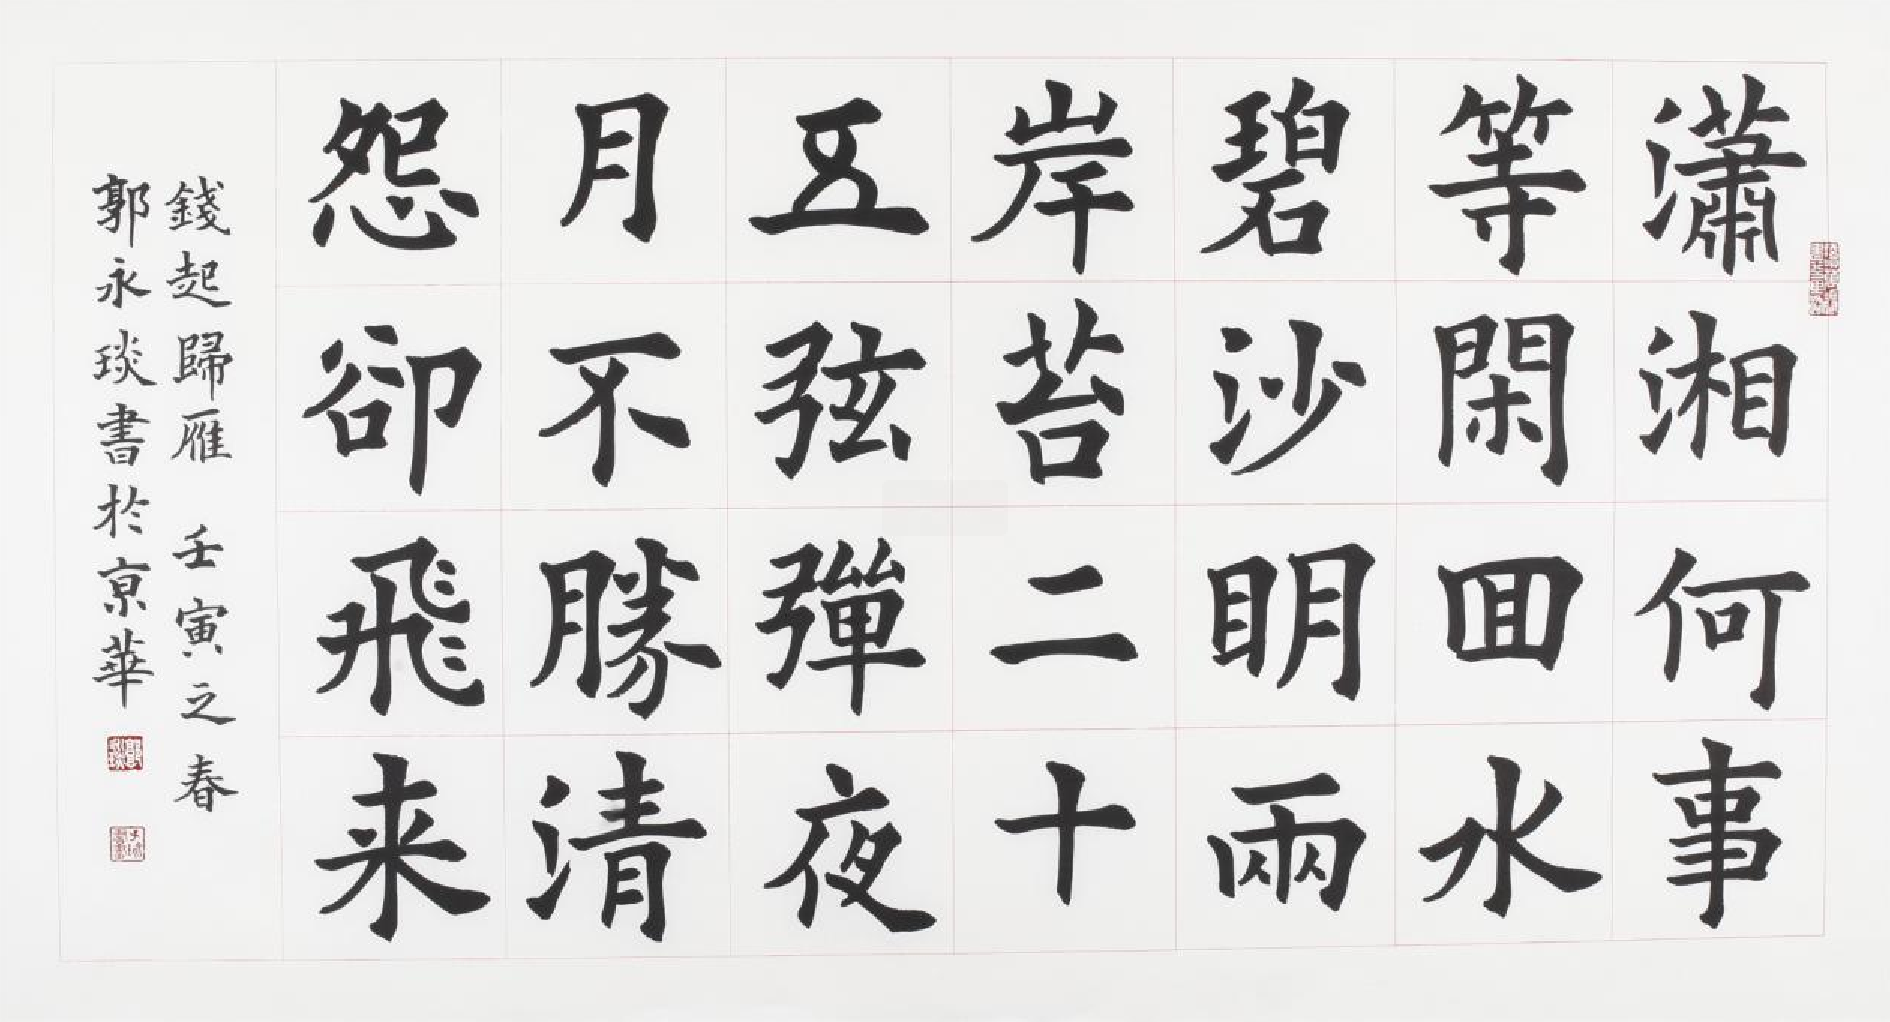 瀟湘何事
等閑回水
碧沙明兩
岸苔二十
五弦彈夜
月不勝清
怨卻飛来
錢起歸雁 壬寅之春
郭永琰書於京華